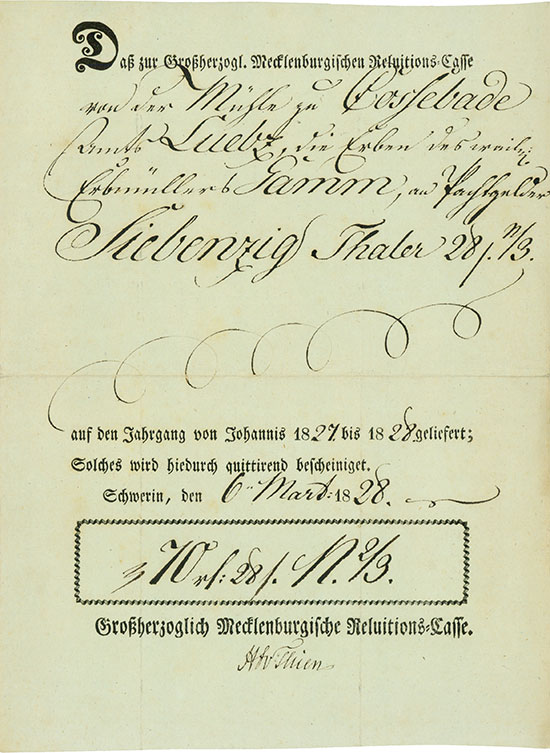 Daß zur Großherzogl. Mecklenburgischen Reluitions-Casse
von der Mühle zu Gossebade
Amts Luebz, die Erben des weil:
Erbmüllers Tamm, an Pachtgelder
Siebenzig Thaler 28 ß. N 2/3.
auf den Jahrgang von Johannis 1827 bis 1828 geliefert;
Solches wird hiedurch quittirend bescheiniget.
Schwerin, den 6 Mart: 1828.
70 rß: 28 ß. N. 2/3.
Großherzoglich Mecklenburgische Reluitions-Casse.